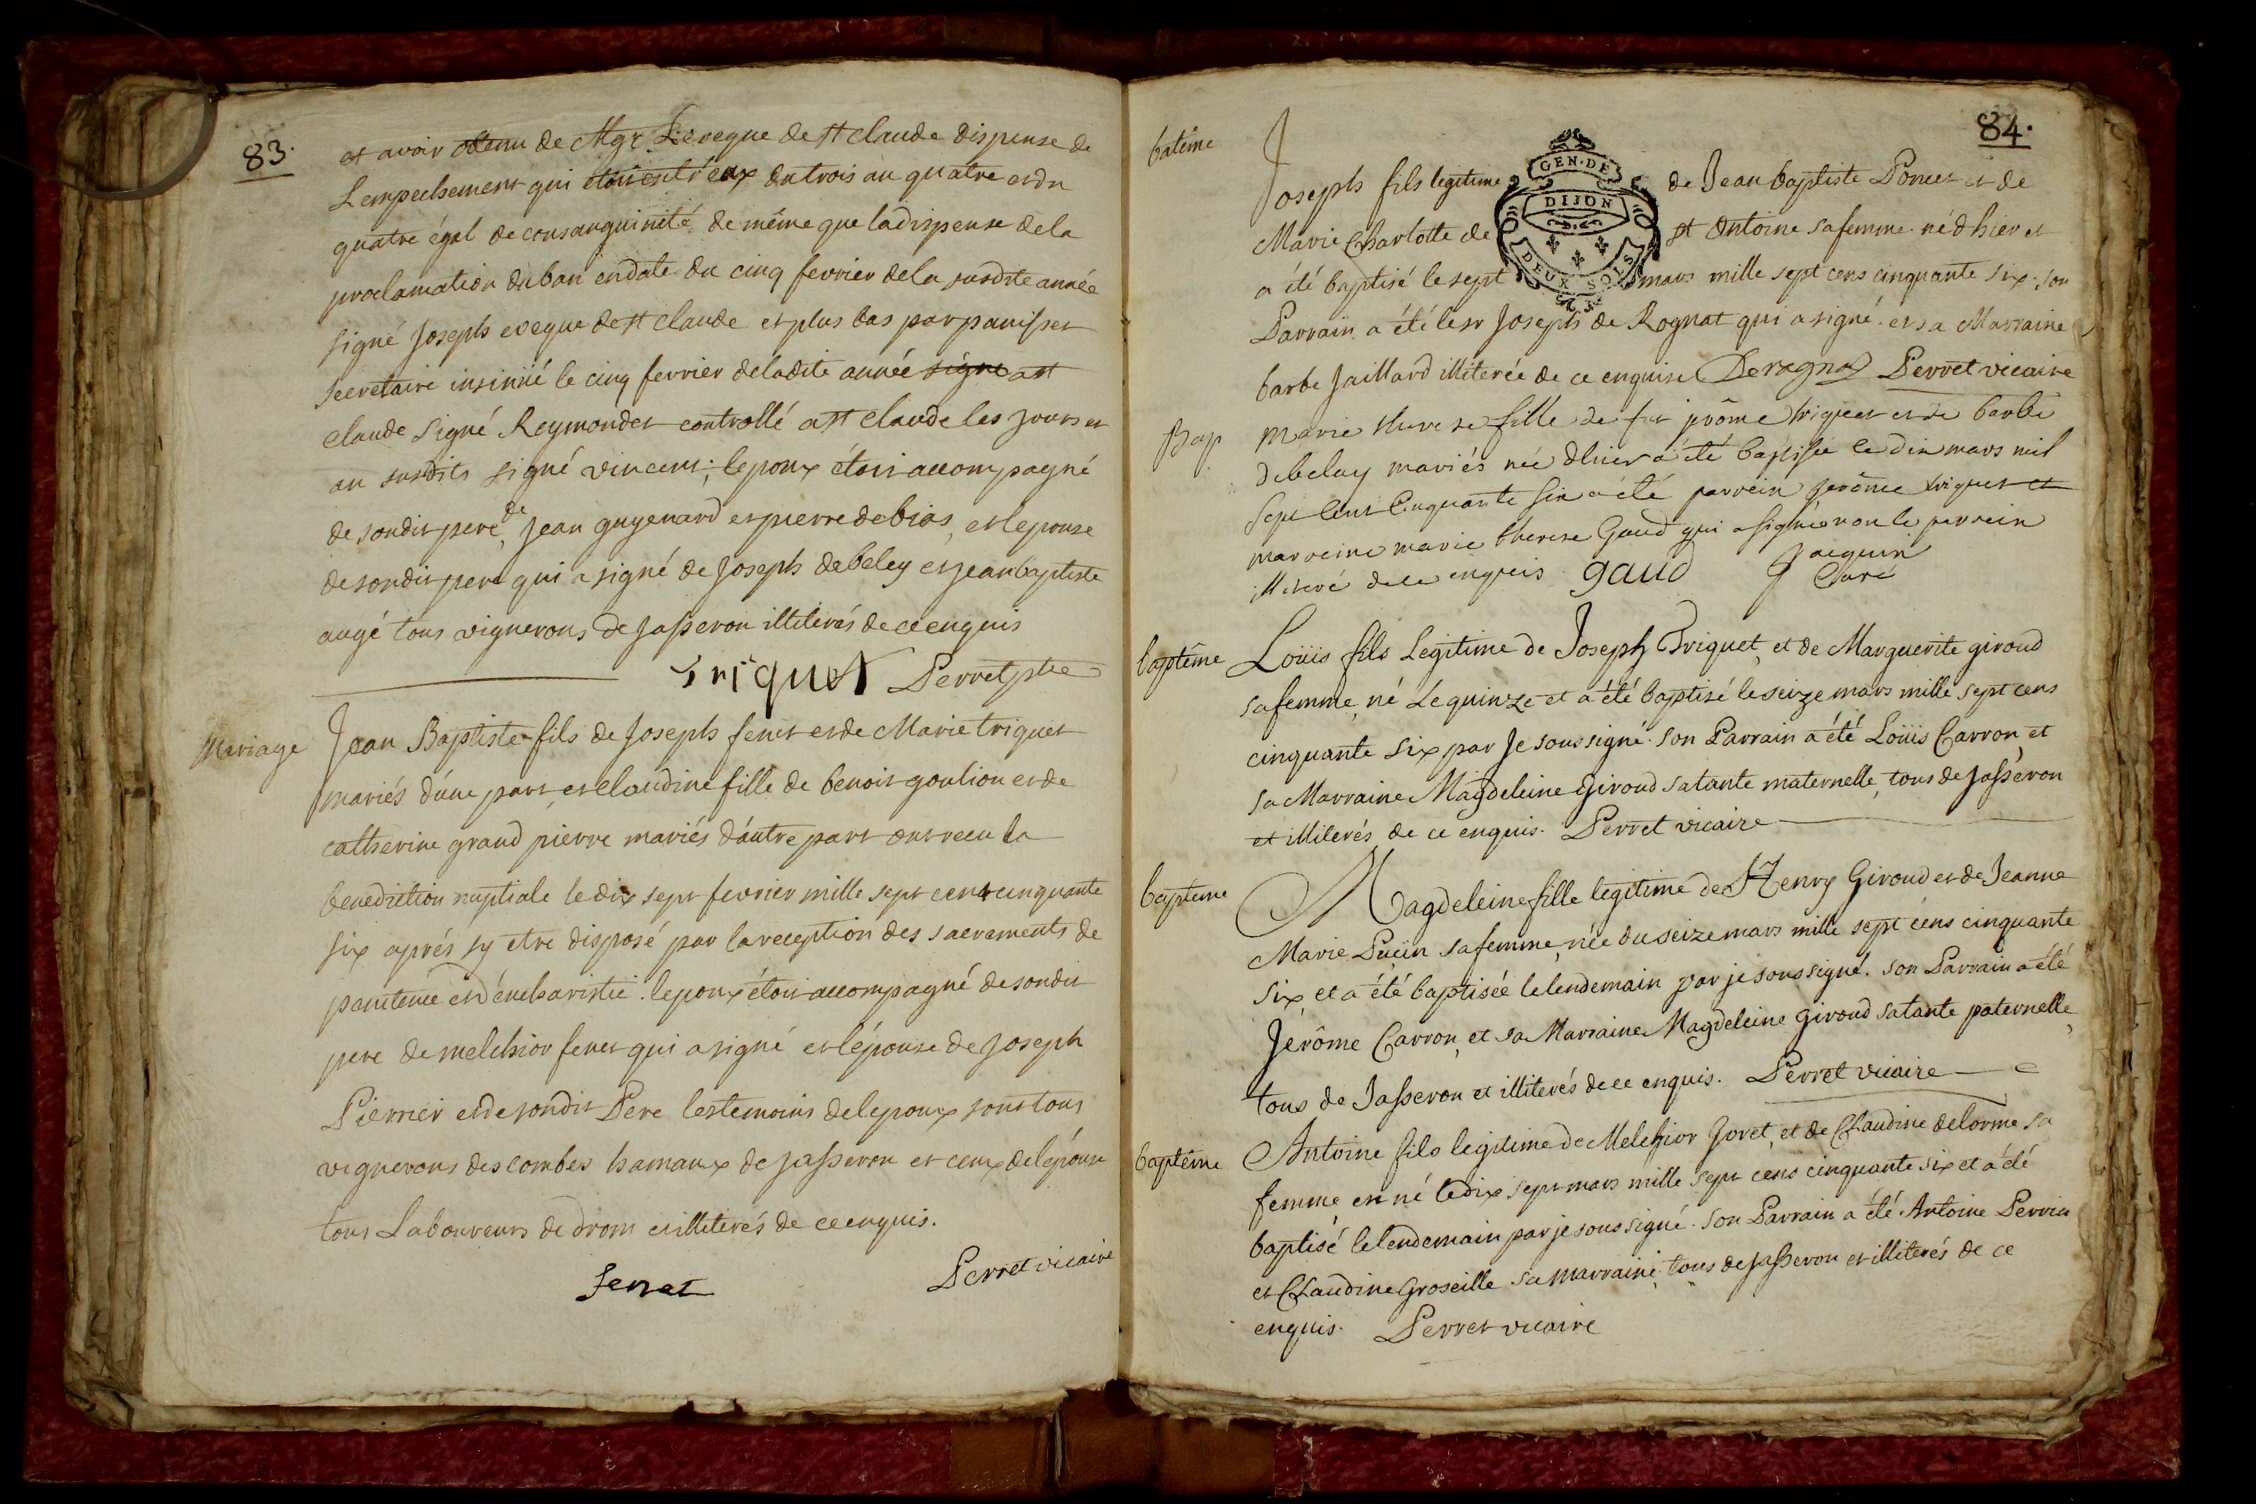 83.
et avoir obtenu de Mgr L'eveque de st claude dispense de
L'empechement qui etoit entr'eux du trois au quatre et du
quatre égal de consanguinité de même que la dispense de la
proclamation du ban en date du cinq fevrier de la susdite année
signé Joseph eveque de st claude et plus bas par panisset
secretaire insinué le cinq fevrier de ladite année signe a st
claude signé Reymondet controllé a st claude les jours et
an susdits signé vincent; lepoux étoit accompagné
de sondit pere de Jean guyenard et pierre debias, et lepouse
de sondit pere qui a signé de Joseph debeley et jean baptiste
augé tous vignerons de Jasseron illiterés de ce enquis
triquet Perret ptre
Mariage
Jean Baptiste fils de Joseph feret et de Marie triquet
mariés d'une part et claudine fille de benoit goulion et de
catherine grand pierre mariés d'autre part ont recu la
benediction nuptiale le dix sept fevrier mille sept cent cinquante
six aprés sy etre disposé par la reception des sacrements de
penitence et d'eucharistie. lepoux étoit accompagné de sondit
pere de melchior feret qui a signé et l'épouse de Joseph
Pierrier et de sondit Pere les temoins de lepoux sont tous
vignerons des combes hamaux de Jasseron et ceux de l'épouse
tous Laboureurs de drom et illiterés de ce enquis.
feret Perret vicaire
84.
batême
GEN. DE
DIJON
DEUX SOLS
Joseph fils legitime de Jean baptiste Poncet et de
Marie Charlotte de st Antoine sa femme. né d'hier et
a été baptisé le sept mars mille sept cens cinquante six. son
Parrain a été le sr Joseph de Rognat qui a signé. et sa Marraine
barbe Jaillard illiterée de ce enquise Derognat Perret vicaire
Bap
marie therese fille de feu jrôme triquet et de barbe
debelay mariés née dhier a été baptisée le dix mars mil
sept cent cinquante six a été parrein jerôme triquet et
marreine marie therese Gaud qui a signée non le parrein
illiteré de ce enquis gaud Jacquin
Curé
baptême
Loüis fils Legitime de Joseph Triquet, et de Marguerite giroud
sa femme, né Le quinze et a été baptisé le seize mars mille sept cens
cinquante six par Je soussigné. son Parrain a été Loüis Carron, et
sa Marraine Magdeleine Giroud sa tante maternelle, tous de Jasseron
et illiterés de ce enquis. Perret vicaire
baptême
Magdeleine fille legitime de Henry Giroud et de Jeanne
Marie Puin sa femme, née du seize mars mille sept cens cinquante
six et a été baptisée le lendemain par je soussigné. son Parrain a été
Jerôme Carron, et sa Marraine Magdeleine Giroud sa tante paternelle,
tous de Jasseron et illiterés de ce enquis. Perret vicaire
baptême
Antoine fils legitime de Melchior Joret, et de Claudine delorme sa
femme, est né le dix sept mars mille sept cens cinquante six et a été
baptisé le lendemain par je soussigné. son Parrain a été Antoine Perrin
et Claudine Groseille sa marraine, tous de Jasseron et illiterés de ce
enquis. Perret vicaire